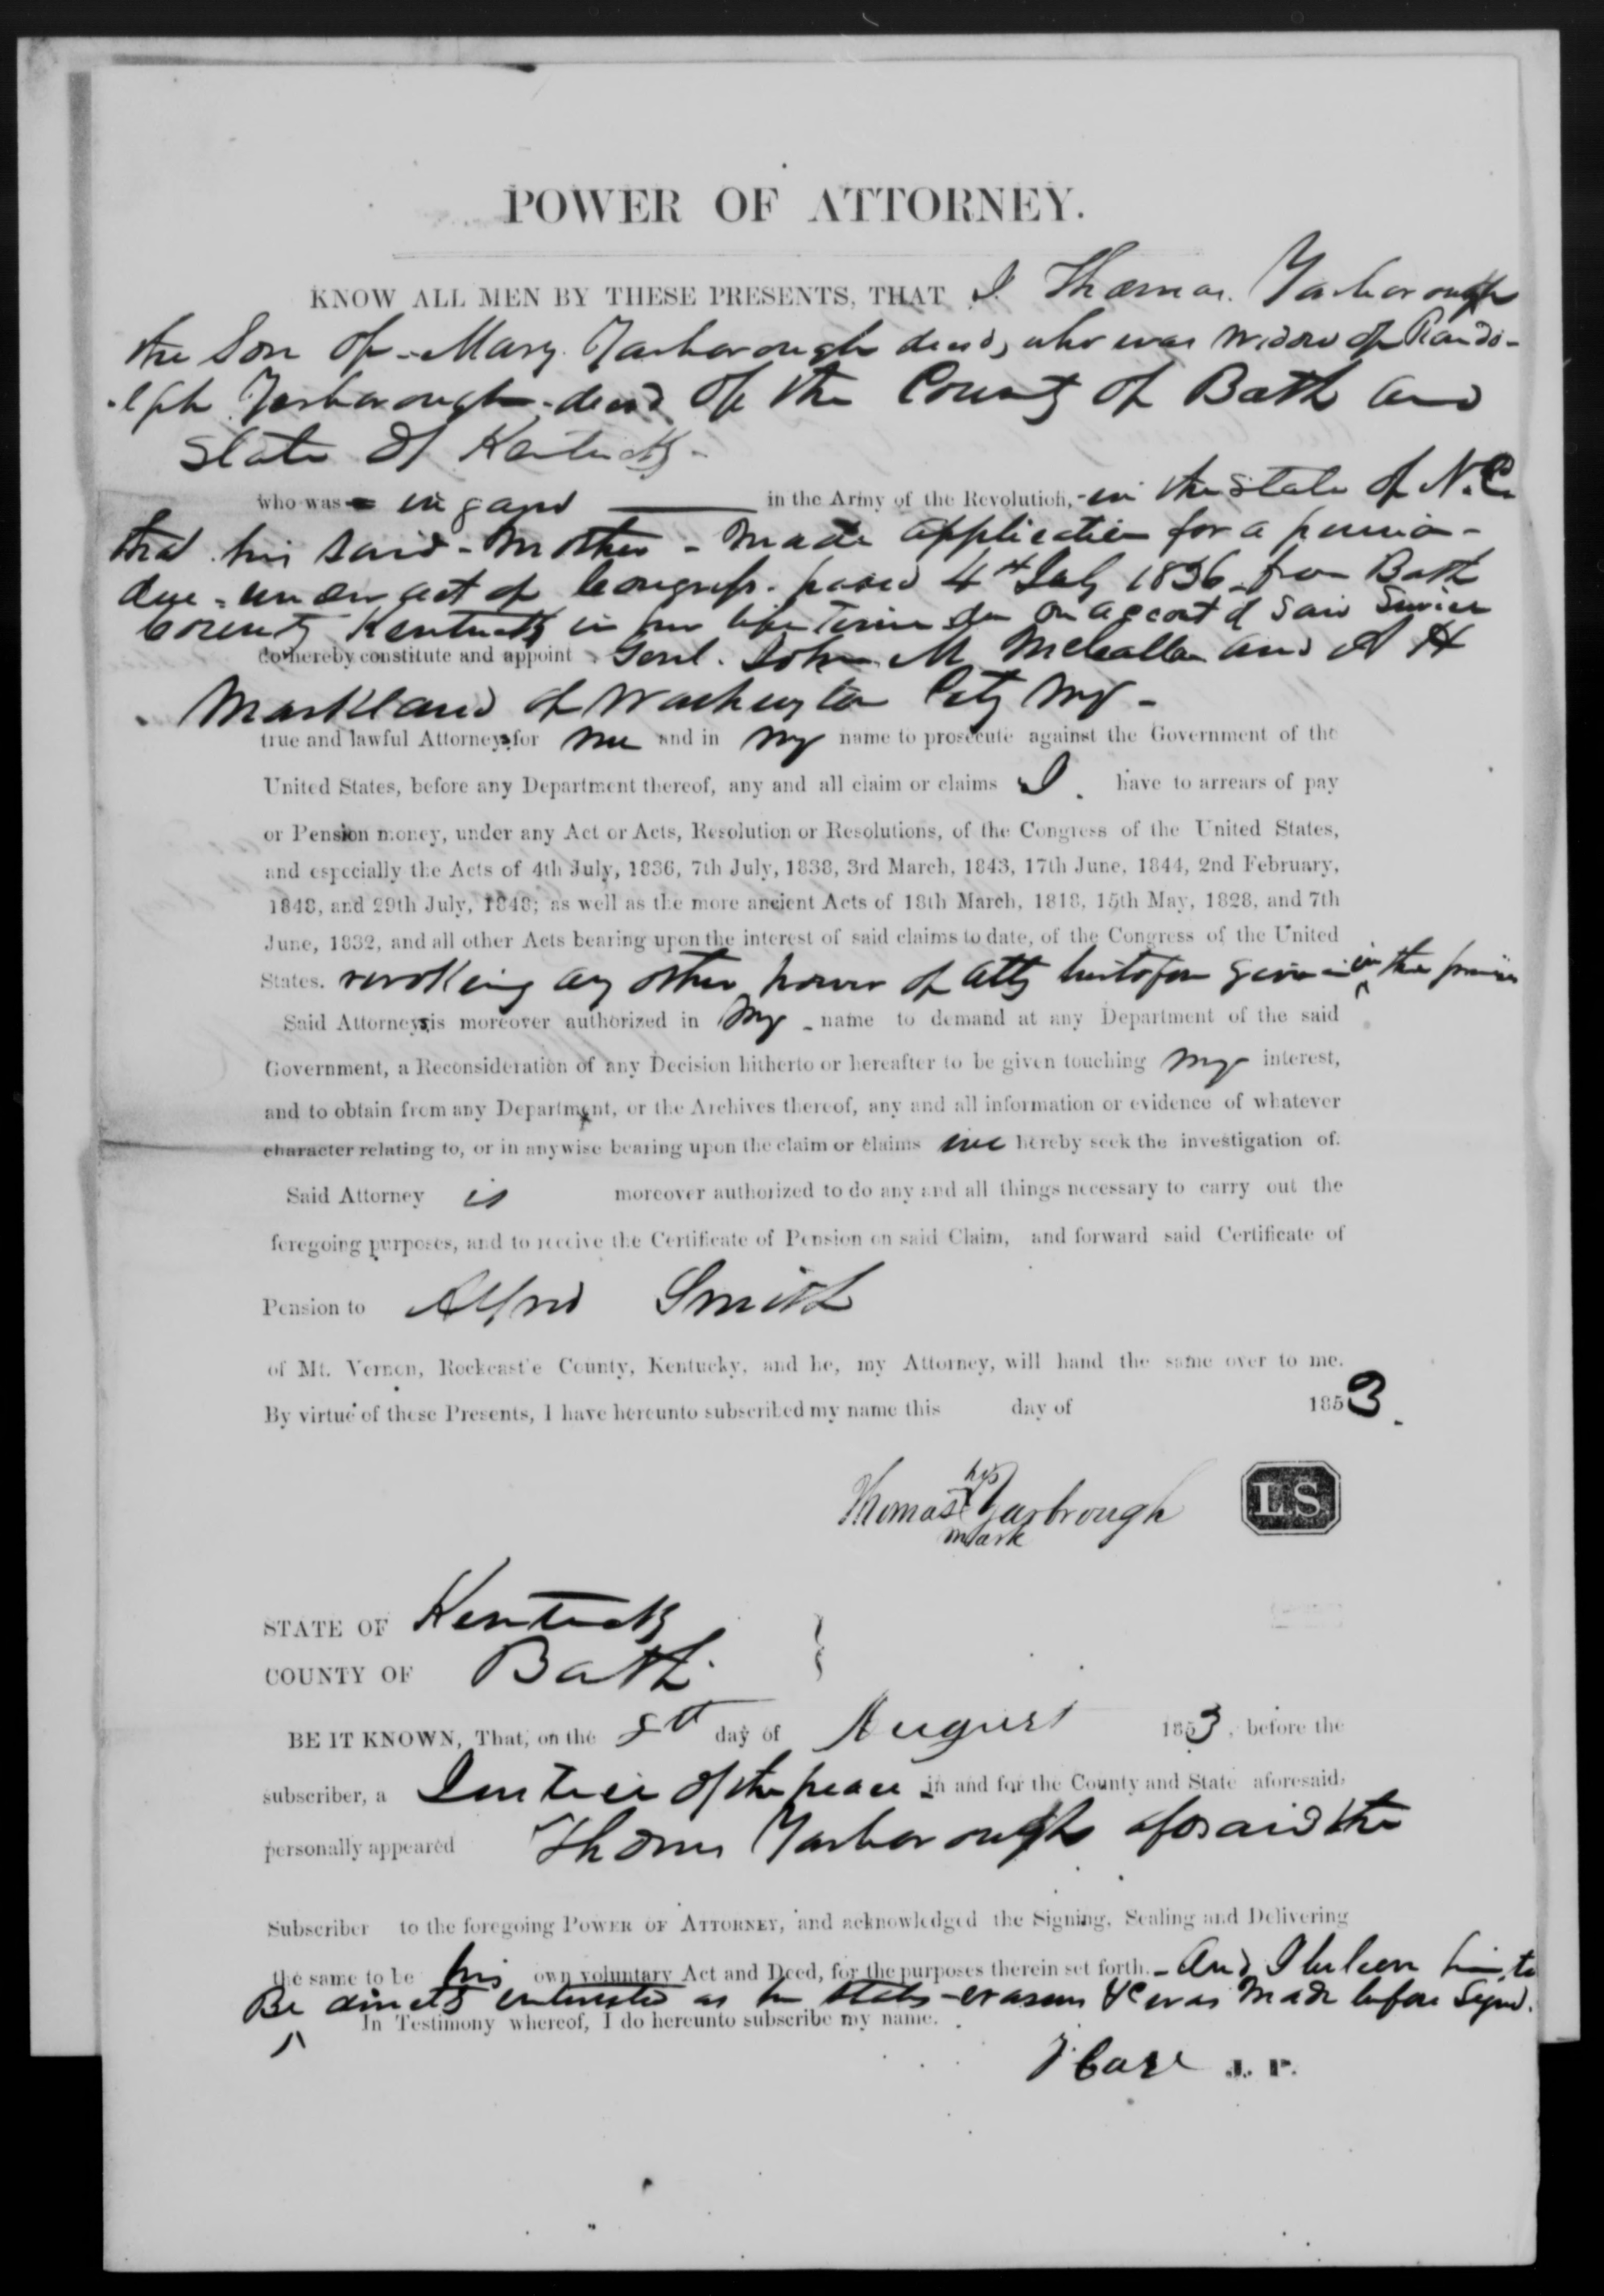 POWER OF ATTORNEY.
KNOW ALL MEN BY THESE PRESENTS, THAT I Thomas Yarborough
the Son of Mary Yarborough decd, who was widow of Rando-
-lph Yarborough decd of the County of Bath and
State of Kentucky -
who was engaged in the Army of the Revolution, - in the state of N.C.
that his said - Mother - made application for a pension -
due - under act of Congress passed 4th July 1836 from Bath
County Kentucky in her life time on account of said Service
do hereby constitute and appoint Genl. John M McCalla and A H
Markland of Washington City my -
true and lawful Attorneys for me and in my name to prosecute against the Government of the
United States, before any Department thereof, any and all claim or claims I have to arrears of pay
or Pension money, under any Act or Acts, Resolution or Resolutions, of the Congress of the United States,
and especially the Acts of 4th July, 1836, 7th July, 1838, 3rd March, 1843, 17th June, 1844, 2nd February,
1848, and 29th July, 1848; as well as the more ancient Acts of 18th March, 1818, 15th May, 1828, and 7th
June, 1832, and all other Acts bearing upon the interest of said claims to date, of the Congress of the United
States. revoking any other power of atty heretofore given in the premises
Said Attorneys is moreover authorized in my name to demand at any Department of the said
Government, a Reconsideration of any Decision hitherto or hereafter to be given touching my interest,
and to obtain from any Department, or the Archives thereof, any and all information or evidence of whatever
character relating to, or in anywise bearing upon the claim or claims we hereby seek the investigation of.
Said Attorney is moreover authorized to do any and all things necessary to carry out the
foregoing purposes, and to receive the Certificate of Pension on said Claim, and forward said Certificate of
Pension to Alfred Smith
of Mt. Vernon, Rockcastle County, Kentucky, and he, my Attorney, will hand the same over to me.
By virtue of these Presents, I have hereunto subscribed my name this day of 1853.
his
Thomas X Yarbrough LS
mark
STATE OF Kentucky
COUNTY OF Bath
BE IT KNOWN, That, on the 8th day of August 1853, before the
subscriber, a Justice of the peace in and for the County and State aforesaid,
personally appeared Thomas Yarborough aforesaid the
Subscriber to the foregoing POWER OF ATTORNEY, and acknowledged the Signing, Sealing and Delivering
the same to be his own voluntary Act and Deed, for the purposes therein set forth. - And I believe him to
Be directly interested as he states - erasure &c was made before Signed.
In Testimony whereof, I do hereunto subscribe my name.
J. P.